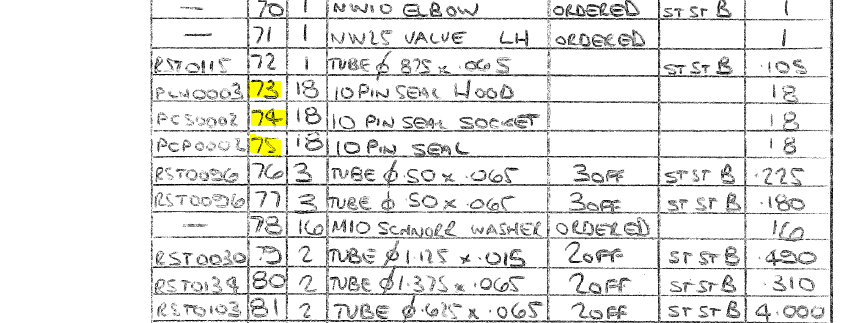 — 70 1 NW10 ELBOW ORDERED ST ST B 1
— 71 1 NW25 VALVE LH ORDERED 1
RST0115 72 1 TUBE ϕ .875 x .065 ST ST B .105
PCH0003 73 18 10 PIN SEAL HOOD 18
PCS0002 74 18 10 PIN SEAL SOCKET 18
PCP0002 75 18 10 PIN SEAL 18
RST0096 76 3 TUBE ϕ .50 x .065 3OFF ST ST B .225
RST0096 77 3 TUBE ϕ .50 x .065 3OFF ST ST B .180
— 78 16 M10 SCHNORR WASHER ORDERED 16
RST0030 79 2 TUBE ϕ1.125 x .015 2OFF ST ST B .490
RST0134 80 2 TUBE ϕ1.375 x .065 2OFF ST ST B .310
RST0103 81 2 TUBE ϕ.625 x .065 2OFF ST ST B 4.000